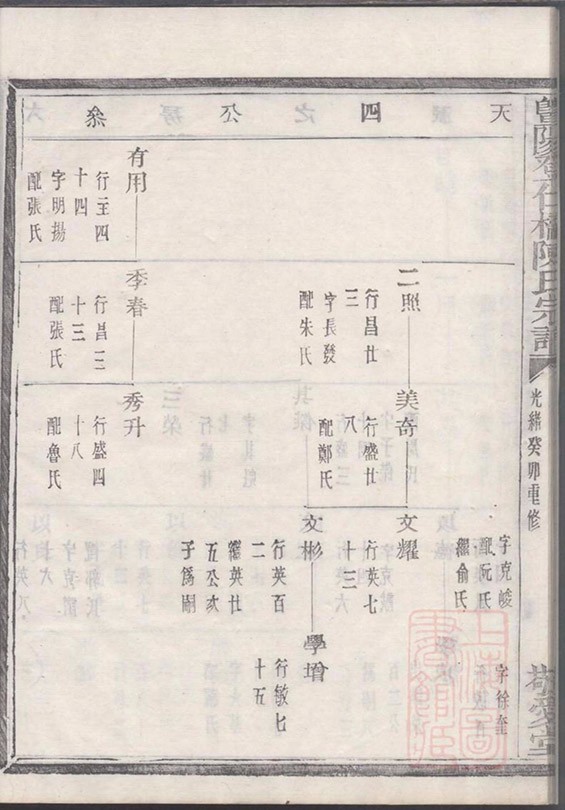 暨陽孝仁橋陳氏宗譜
光緒癸卯重修
敬愛堂
天四公叅
字克峻
配阮氏
繼俞氏
字徐奎
二照
行昌廿
三
字長發
配朱氏
美奇
行盛廿
八
配鄭氏
文耀
行英七
十三
文彬
行英百
二
繼英廿
五公次
子爲嗣
學增
行敏七
十五
有用
行至四
十四
字明揚
配張氏
季春
行昌三
十三
配張氏
秀升
行盛四
十八
配魯氏
上海圖書館藏